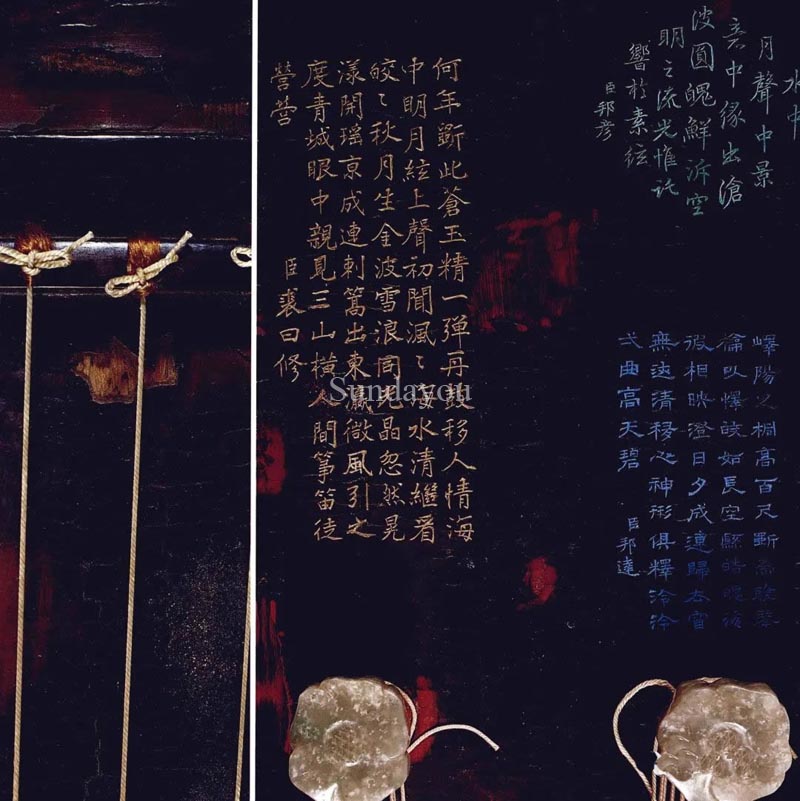 水中
月聲中景
意中緣出滄
波圓魄鮮泝空
明之流光惟託
響於素絃
臣邦彥
嶧陽之桐高百尺斲為
以懌皎如長空懸皓魄
相映澄日夕成連歸去窅
無迹清移心神形俱釋泠泠
弌曲高天碧
臣邦達
何年斲此蒼玉精一彈再鼓移人情海
中明月絃上聲初聞渢〻海水清繼看
皎〻秋月生金波雪浪同光晶忽然晃
漾開瑤京成連刺篙出東瀛微風引之
度青城眼中親見三山橫人間箏笛徒
營營
臣裘曰修
Sundayou